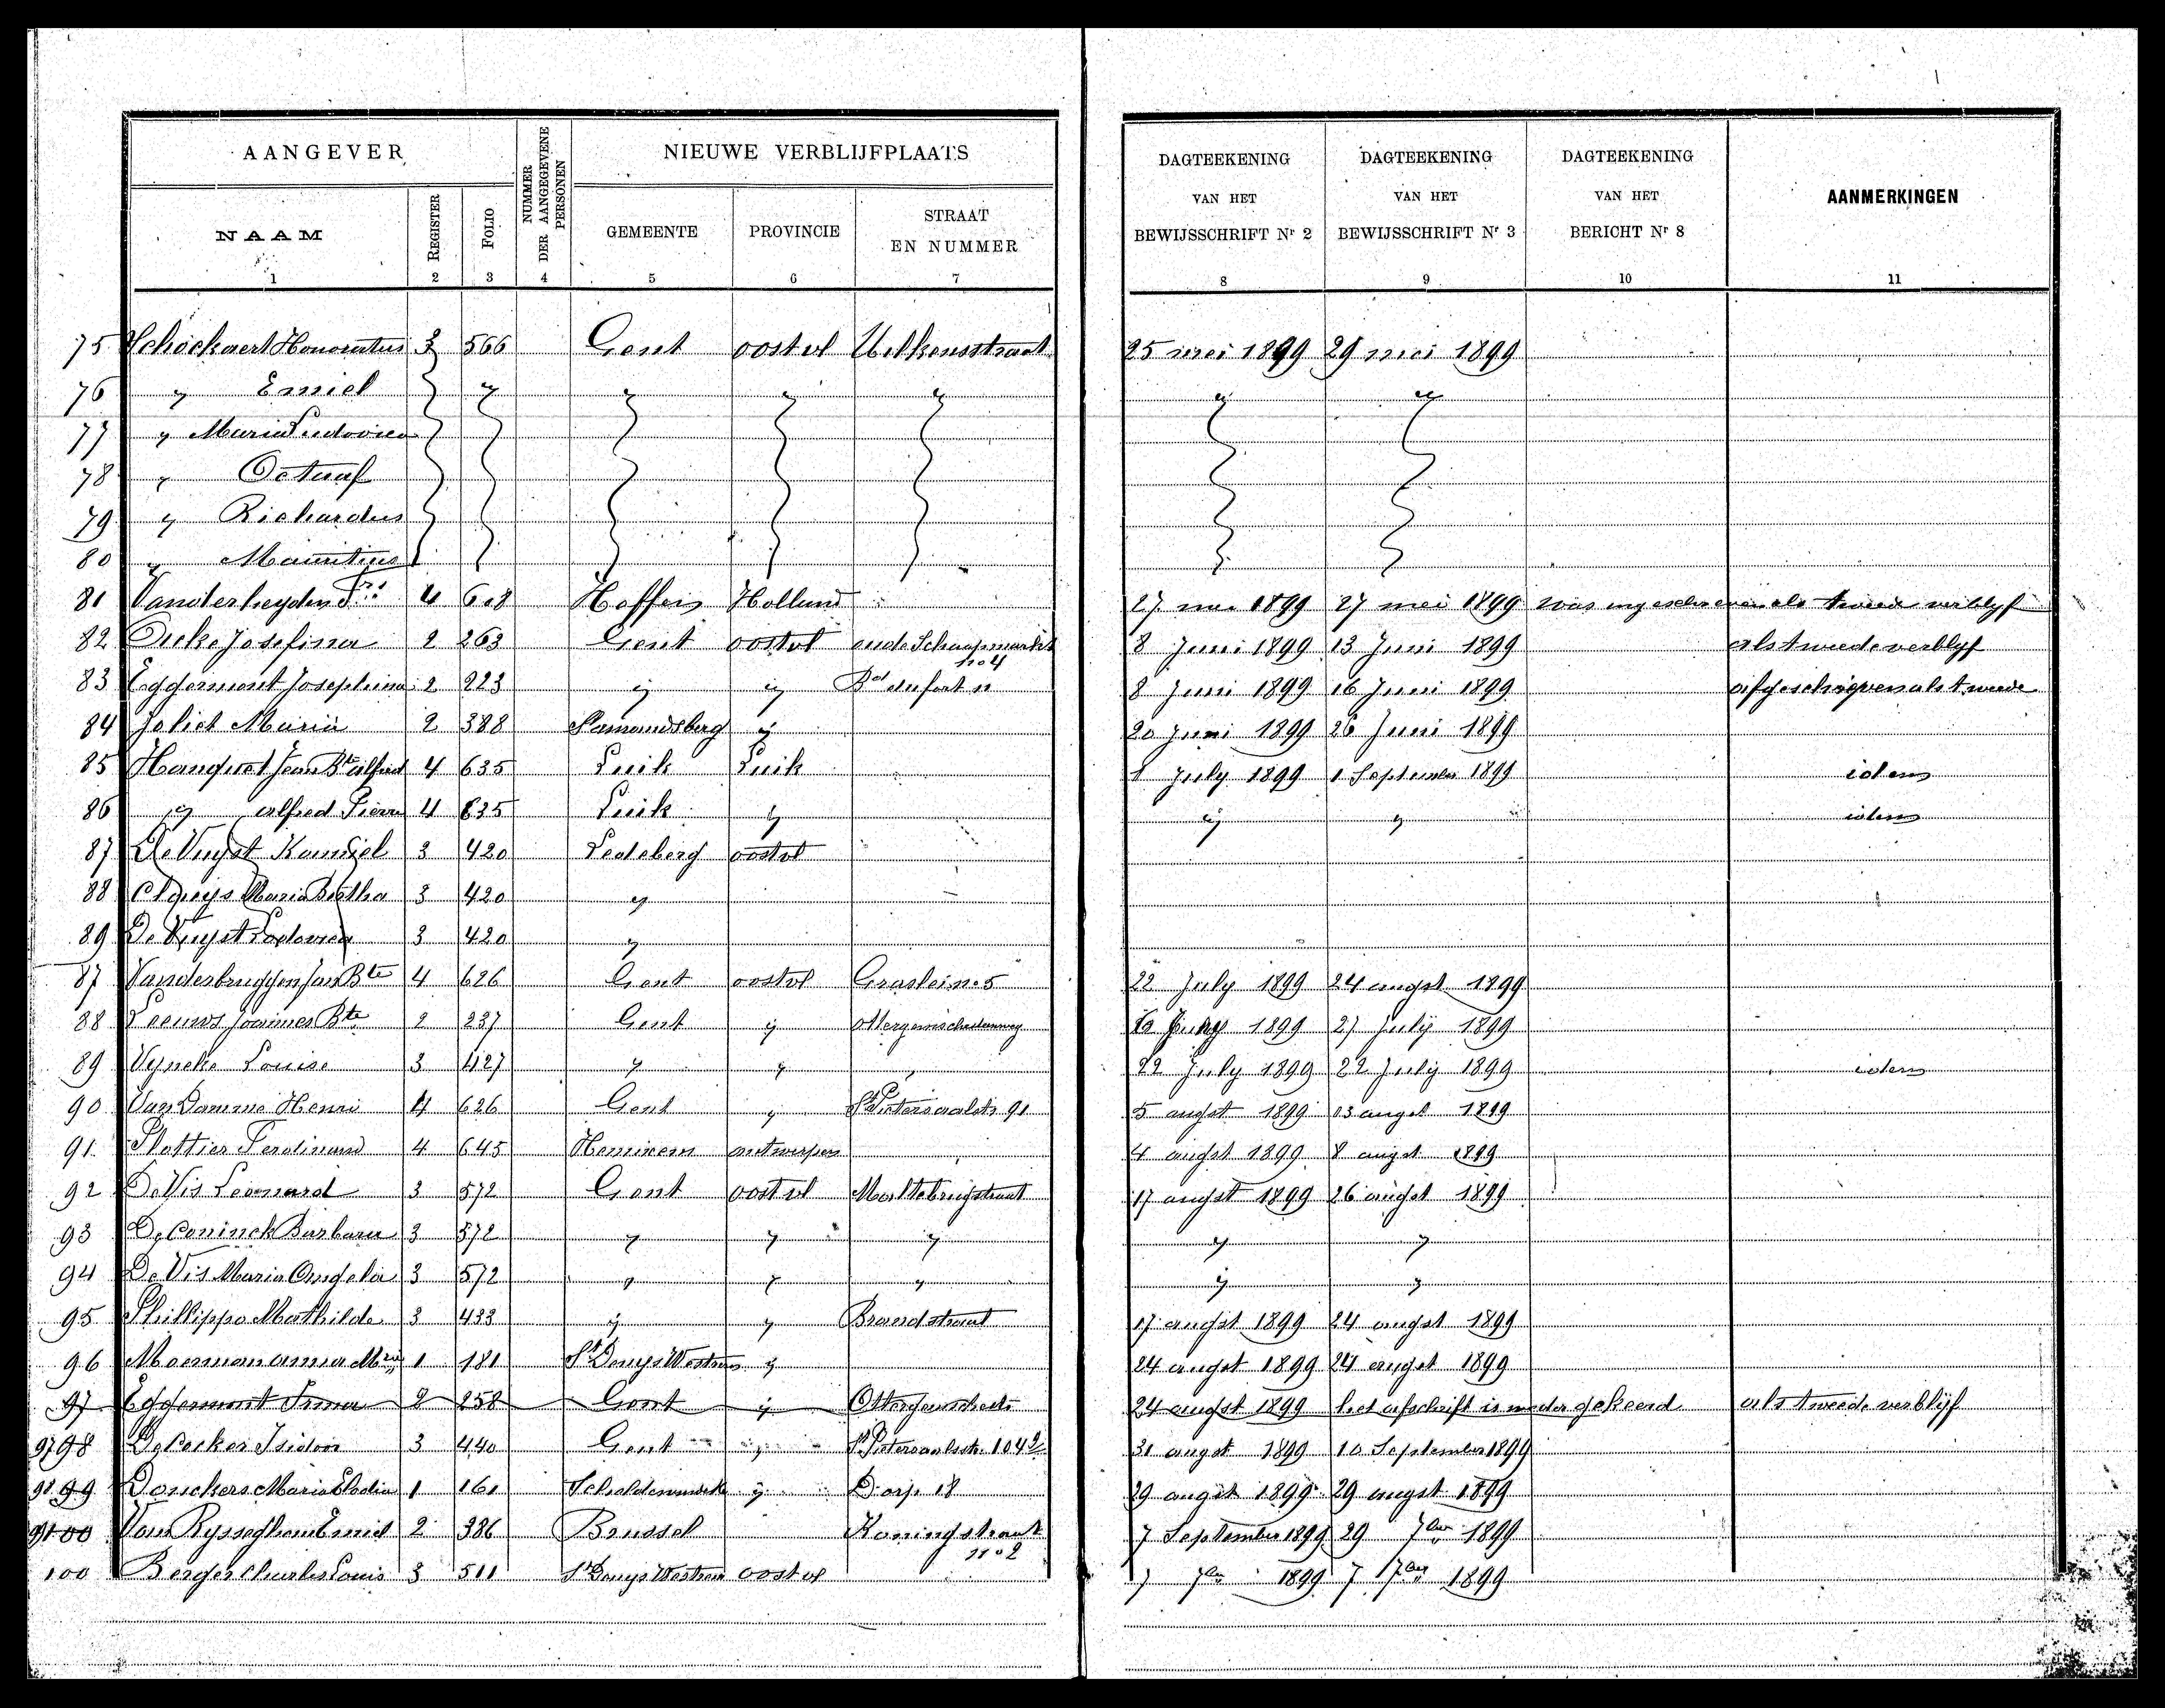 AANGEVER
NUMMER DER AANGEGEVENE PERSONEN
NIEUWE VERBLIJFPLAATS
DAGTEEKENING VAN HET BEWIJSSCHRIFT Nr 2
DAGTEEKENING VAN HET BEWIJSSCHRIFT Nr 3
DAGTEEKENING VAN HET BERICHT Nr 8
AANMERKINGEN
NAAM REGISTER FOLIO GEMEENTE PROVINCIE STRAAT EN NUMMER
1 2 3 4 5 6 7 8 9 10 11
75 Schockaert Honoratus 3 566 Gent oostvl 25 mei 1899 29 mei 1899
76 " Emiel " " " " " "
77 " Maria Ludovica
78 " Octaaf
79 " Richardus
80 " Mauritius
81 Vanderheyden 4 608 Holland 27 mei 1899 27 mei 1899 was ingeschreven als tweede verblyf
82 Josefina 2 263 Gent oostvl oude Schaapmarkt no 4 8 Juni 1899 13 Juni 1899 als tweede verblyf
83 Eggermont Josephina 2 223 " " 8 Juni 1899 16 Juni 1899 afgeschreven als tweede
84 Joliet Maria 2 388 St amandsberg " 20 Juni 1899 26 Juni 1899
85 Hanquet Jean Bte alfred 4 635 Luik Luik 8 July 1899 1 September 1899 idem
86 " alfred Pierre 4 635 Luik " " " idem
87 De Vuyst Kamiel 3 420 Ledeberg oostvl
88 Maria Bertha 3 420 "
89 De Vuyst Ludovica 3 420 "
87 Vanderbruggen Jan Bte 4 626 Gent oostvl Graslei no 5 22 July 1899 24 augst 1899
88 Leeuws Joannes Bte 2 237 Gent " 1899 27 July 1899
89 Vyncke Louise 3 427 " " 22 July 1899 22 July 1899 idem
90 Van Damme Henri 4 626 Gent " St Pietersaalstr 91 5 augst 1899 03 augst 1899
91 Plottier Ferdinand 4 645 Hemixem antwerpen 4 augst 1899 8 augst 1899
92 De Vis Leonard 3 572 Gent oostvl Maltebrugstraat 17 augst 1899 26 augst 1899
93 De Coninck Barbara 3 572 " " " " "
94 De Vis Maria Angela 3 572 " " " " "
95 Phillippo Mathilde 3 433 " " Brandstraat 17 augst 1899 24 augst 1899
96 Moerman anna Mria 1 181 St Denys Westrem " 24 augst 1899 24 augst 1899
97 Eggermont Irma 2 258 Gent " 24 augst 1899 het afschrift is weder gekeerd als tweede verblijf
97 98 De Pecker Isidoor 3 440 Gent " St Pietersaalsstr. 31 augst 1899 10 September 1899
98 99 Donckers Maria 1 161 Schelderwindeke " Dorp 18 29 augst 1899 29 augst 1899
99 100 Van Ryseghem Emiel 2 386 Brussel Koningstraat no 2 7 September 1899 29 7ber 1899
100 Berger Charles Louis 3 511 St Denys Westrem oostvl 7 7ber 1899 7 7ber 1899